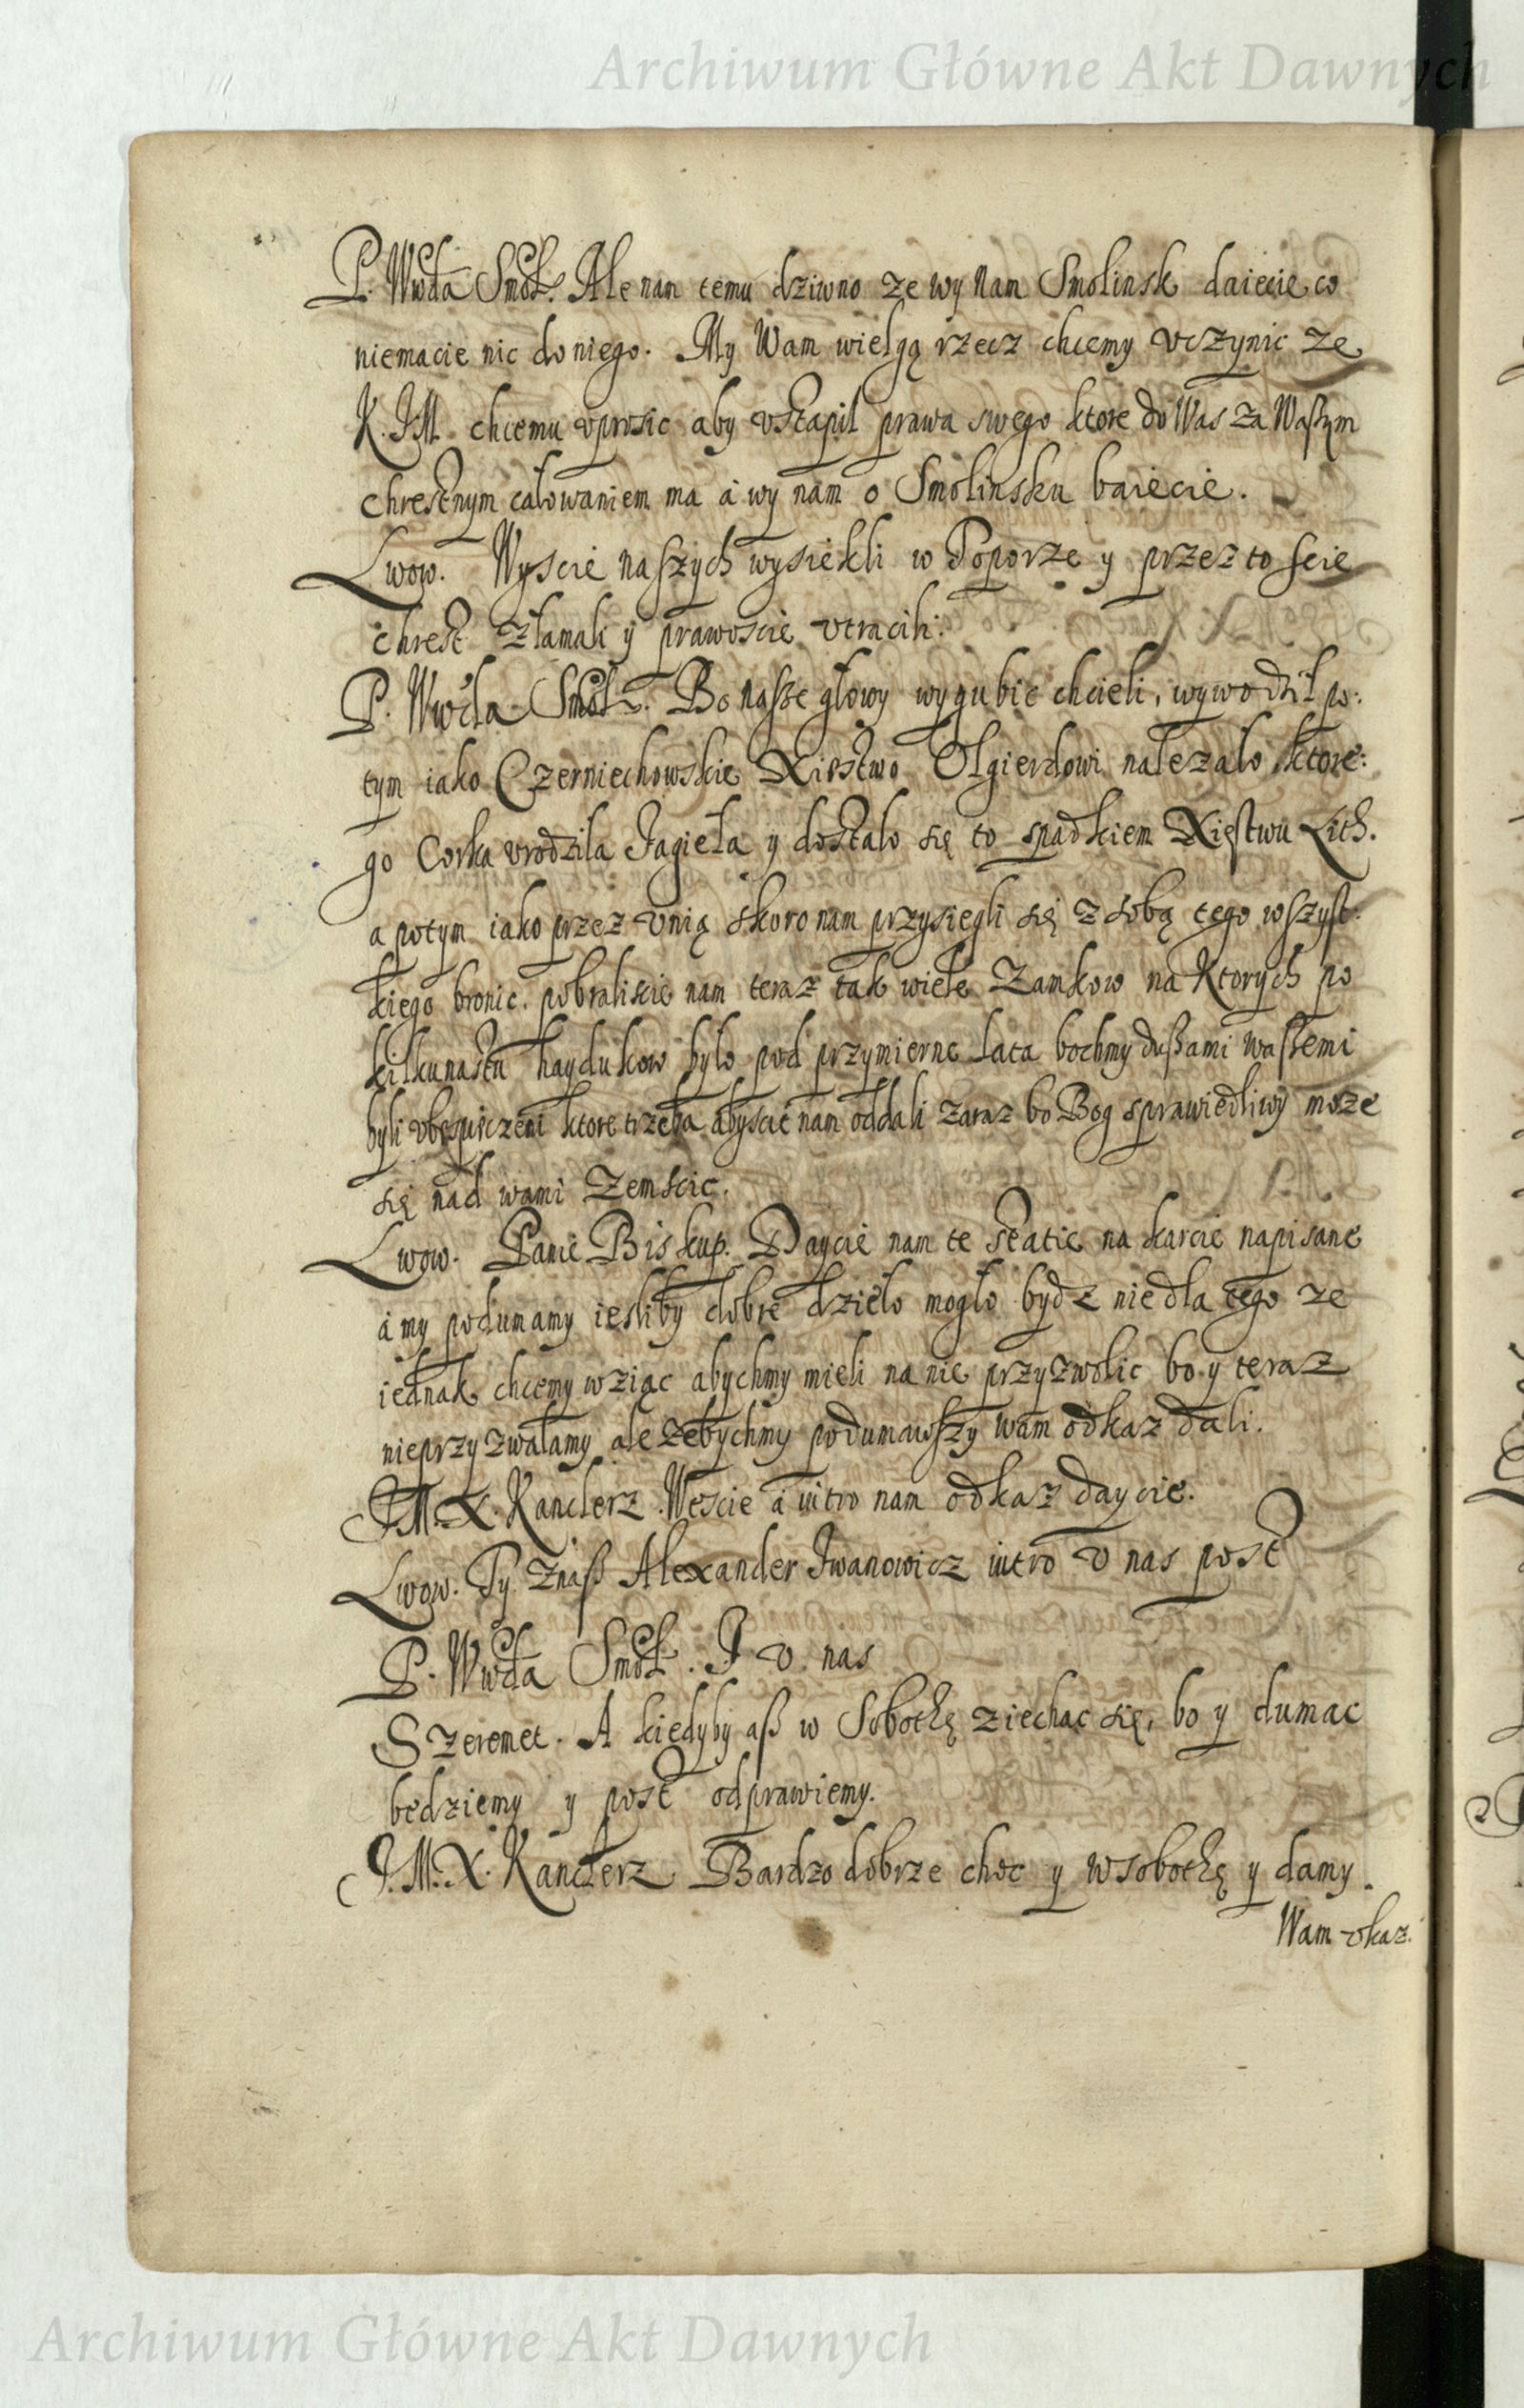 Archiwum Główne Akt Dawnych
P. Wwda Smol. Ale nam temu dziwno ze wy Nam Smolinsk daiecie co
niemacie nic do niego. My Wam wielgą rzecz chcemy vczynic ze
K. J.M. chcemu vprosic aby vstąpil prawa swego ktore do Was za Waszym
chrestnym całowaniem ma á wy nam o Smolinsku baiecie.
Lwow. Wyscie naszych wysiekli w Poporze y przez to scie
chrest złamali y prawoscie vtracili.
P. Wwda Smol. Bo nasze głowy wygubic chcieli, wywodził po:
tym iako Czerniechowskie Xięstwo Olgierdowi nalezało ktore:
go Corka vrodziła Jagieła y dostalo się to spadkiem Xięstwu Lith.
a potym iako przez vnią skoro nam przysięgli się z sobą tego wszyst:
kiego bronic. pobraliscie nam teraz tak wiele Zamkow na ktorych po
kilkunastu haydukow było pod przymierne lata bochmy duszami waszemi
byli vbespieczeni ktore trzeba abyscie nam oddali zaraz bo Bog sprawiedliwy moze
się nad wami zemscic.
Lwow. Panie Biskup. Daycie nam te statie na karcie napisane
á my podumamy iesliby dobre dzieło mogło bydz nie dla tego ze
iednak chcemy wziąc abychmy mieli na nie przyzwolic bo y teraz
nieprzyzwalamy ale zebychmy podumawszy wam odkaz dali.
J.M.X. Kanclerz. Wescie á iutro nam odkaz daycie.
Lwow. Ty znasz Alexander Jwanowicz iutro v nas post
P. Wwda Smol. J v nas
Szeremet. A kiedyby asz w Sobothę ziechac się, bo y dumac
będziemy y post odprawiemy.
J.M.X. Kanclerz. Bardzo dobrze choc y w sobothę y damy
Wam vkaz.
Archiwum Główne Akt Dawnych